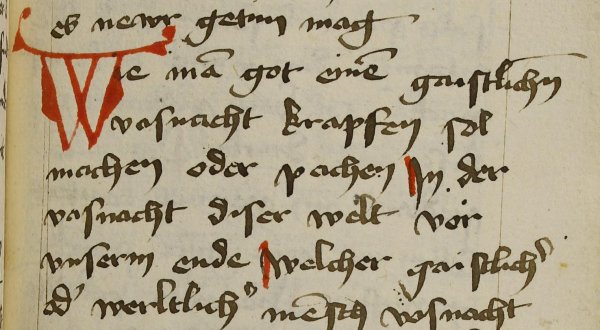 es newr getun mag
Wie mā got einē gaistlichn
vasnacht krapfen sol
machen oder pachen In der
vasnacht diser welt vor
vnserm ende Welcher gaistlich̾
od̾ werltlich̾ mēsch vasnacht